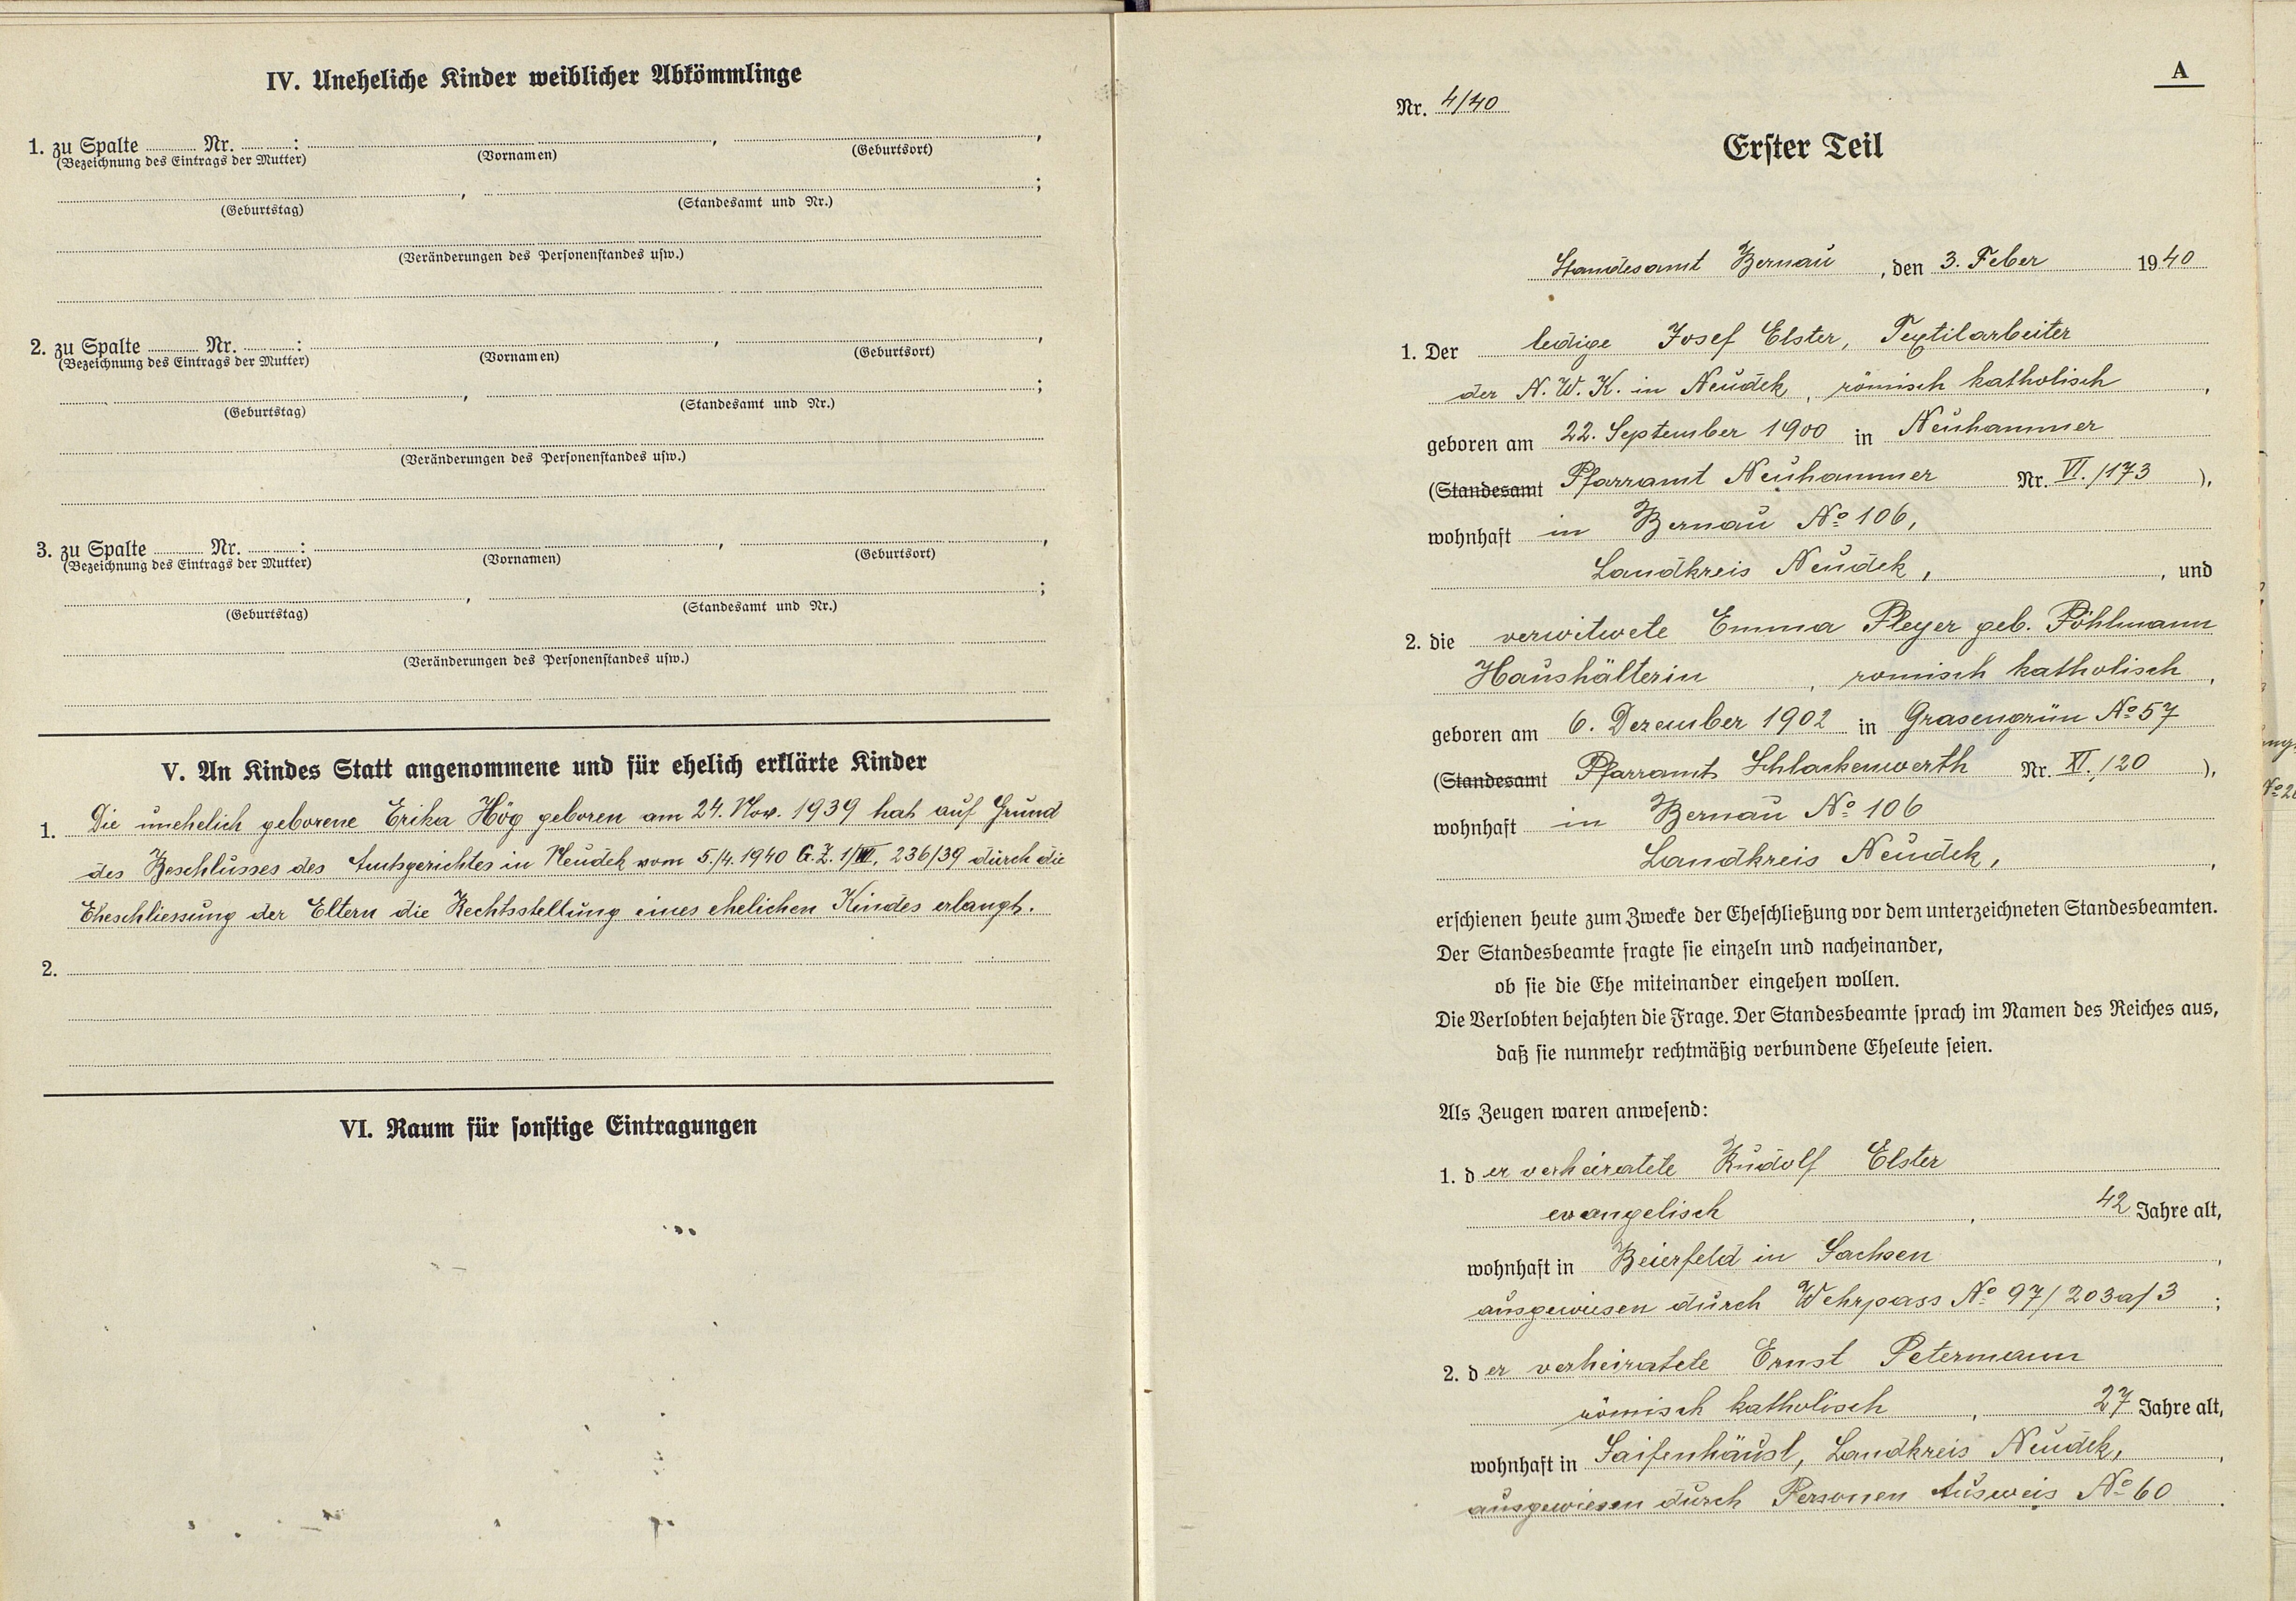 IV. Uneheliche Kinder weiblicher Abkömmlinge
1. zu Spalte ........ Nr. ........: ........, ........,
(Bezeichnung des Eintrags der Mutter) (Vornamen) (Geburtsort)
........, ........;
(Geburtstag) (Standesamt und Nr.)
(Veränderungen des Personenstandes usw.)
2. zu Spalte ........ Nr. ........: ........, ........,
(Bezeichnung des Eintrags der Mutter) (Vornamen) (Geburtsort)
........, ........;
(Geburtstag) (Standesamt und Nr.)
(Veränderungen des Personenstandes usw.)
3. zu Spalte ........ Nr. ........: ........, ........,
(Bezeichnung des Eintrags der Mutter) (Vornamen) (Geburtsort)
........, ........;
(Geburtstag) (Standesamt und Nr.)
(Veränderungen des Personenstandes usw.)
V. An Kindes Statt angenommene und für ehelich erklärte Kinder
1. Die unehelich geborene Erika Hög geboren am 24. Nov. 1939 hat auf Grund
des Beschlusses des Amtsgerichtes in Neudek vom 5./4. 1940 G. Z. 1/VII. 236/39 durch die
Eheschliessung der Eltern die Rechtsstellung eines ehelichen Kindes erlangt.
2.
VI. Raum für sonstige Eintragungen
A
Nr. 4/40
Erster Teil
Standesamt Bernau, den 3. Feber 1940
1. Der ledige Josef Elster, Textilarbeiter
der N. W. K. in Neudek, römisch katholisch,
geboren am 22. September 1900 in Neuhammer
(Standesamt Pfarramt Neuhammer Nr. VI./173),
wohnhaft in Bernau No 106,
Landkreis Neudek, , und
2. die verwitwete Emma Pleyer geb. Pöhlmann
Haushälterin, romisch katholisch,
geboren am 6. Dezember 1902 in Grasengrün No 57
(Standesamt Pfarramt Schlackenwerth Nr. XI./20),
wohnhaft in Bernau No 106
Landkreis Neudek, ,
erschienen heute zum Zwecke der Eheschließung vor dem unterzeichneten Standesbeamten.
Der Standesbeamte fragte sie einzeln und nacheinander,
ob sie die Ehe miteinander eingehen wollen.
Die Verlobten bejahten die Frage. Der Standesbeamte sprach im Namen des Reiches aus,
daß sie nunmehr rechtmäßig verbundene Eheleute seien.
Als Zeugen waren anwesend:
1. der verheiratete Rudolf Elster
evangelisch, 42 Jahre alt,
wohnhaft in Beierfeld in Sachsen,
ausgewiesen durch Wehrpass No 97/203a/3;
2. der verheiratete Ernst Petermann
römisch katholisch, 27 Jahre alt,
wohnhaft in Saifenhäusl, Landkreis Neudek, ,
ausgewiesen durch Personen Ausweis No 60.